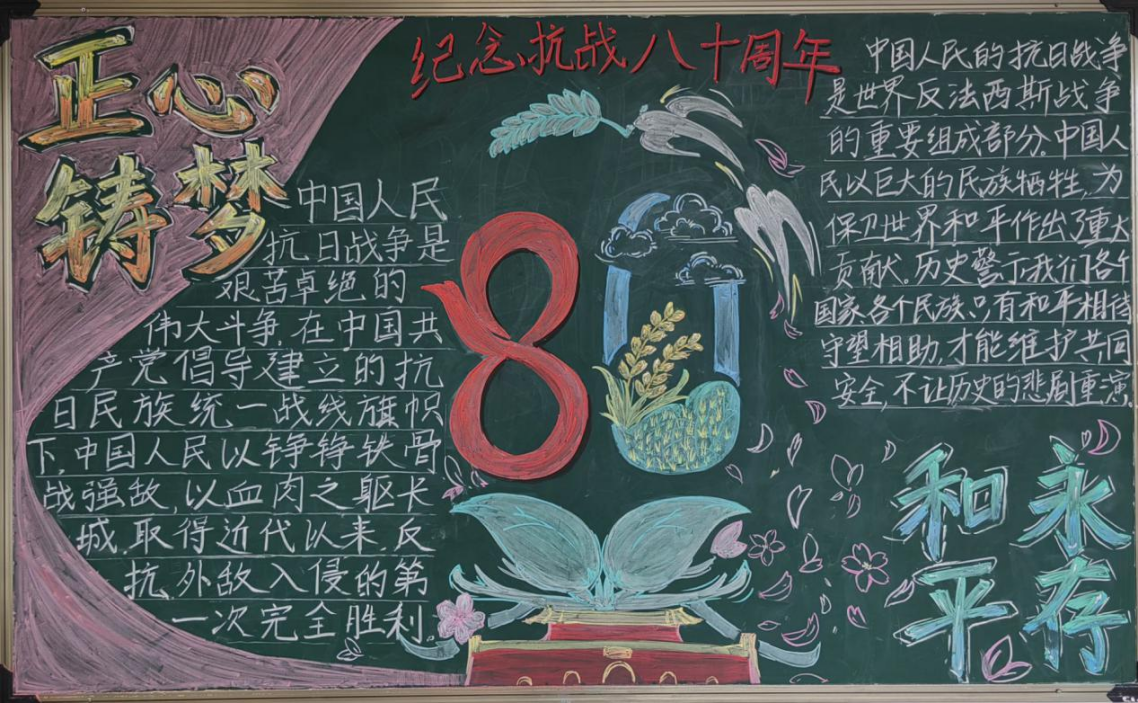 正心
铸梦
纪念抗战八十周年
中国人民
抗日战争是
艰苦卓绝的
伟大斗争,在中国共
产党倡导建立的抗
日民族统一战线旗帜
下,中国人民以铮铮铁骨
战强敌,以血肉之躯长
城,取得近代以来,反
抗,外敌入侵的第
一次完全胜利。
80
中国人民的抗日战争
是世界反法西斯战争
的重要组成部分。中国人
民以巨大的民族牺牲,为
保卫世界和平作出了重大
贡献。历史警示我们各个
国家各个民族只有和平相待
守望相助,才能维护共同
安全,不让历史的悲剧重演。
和平
永存